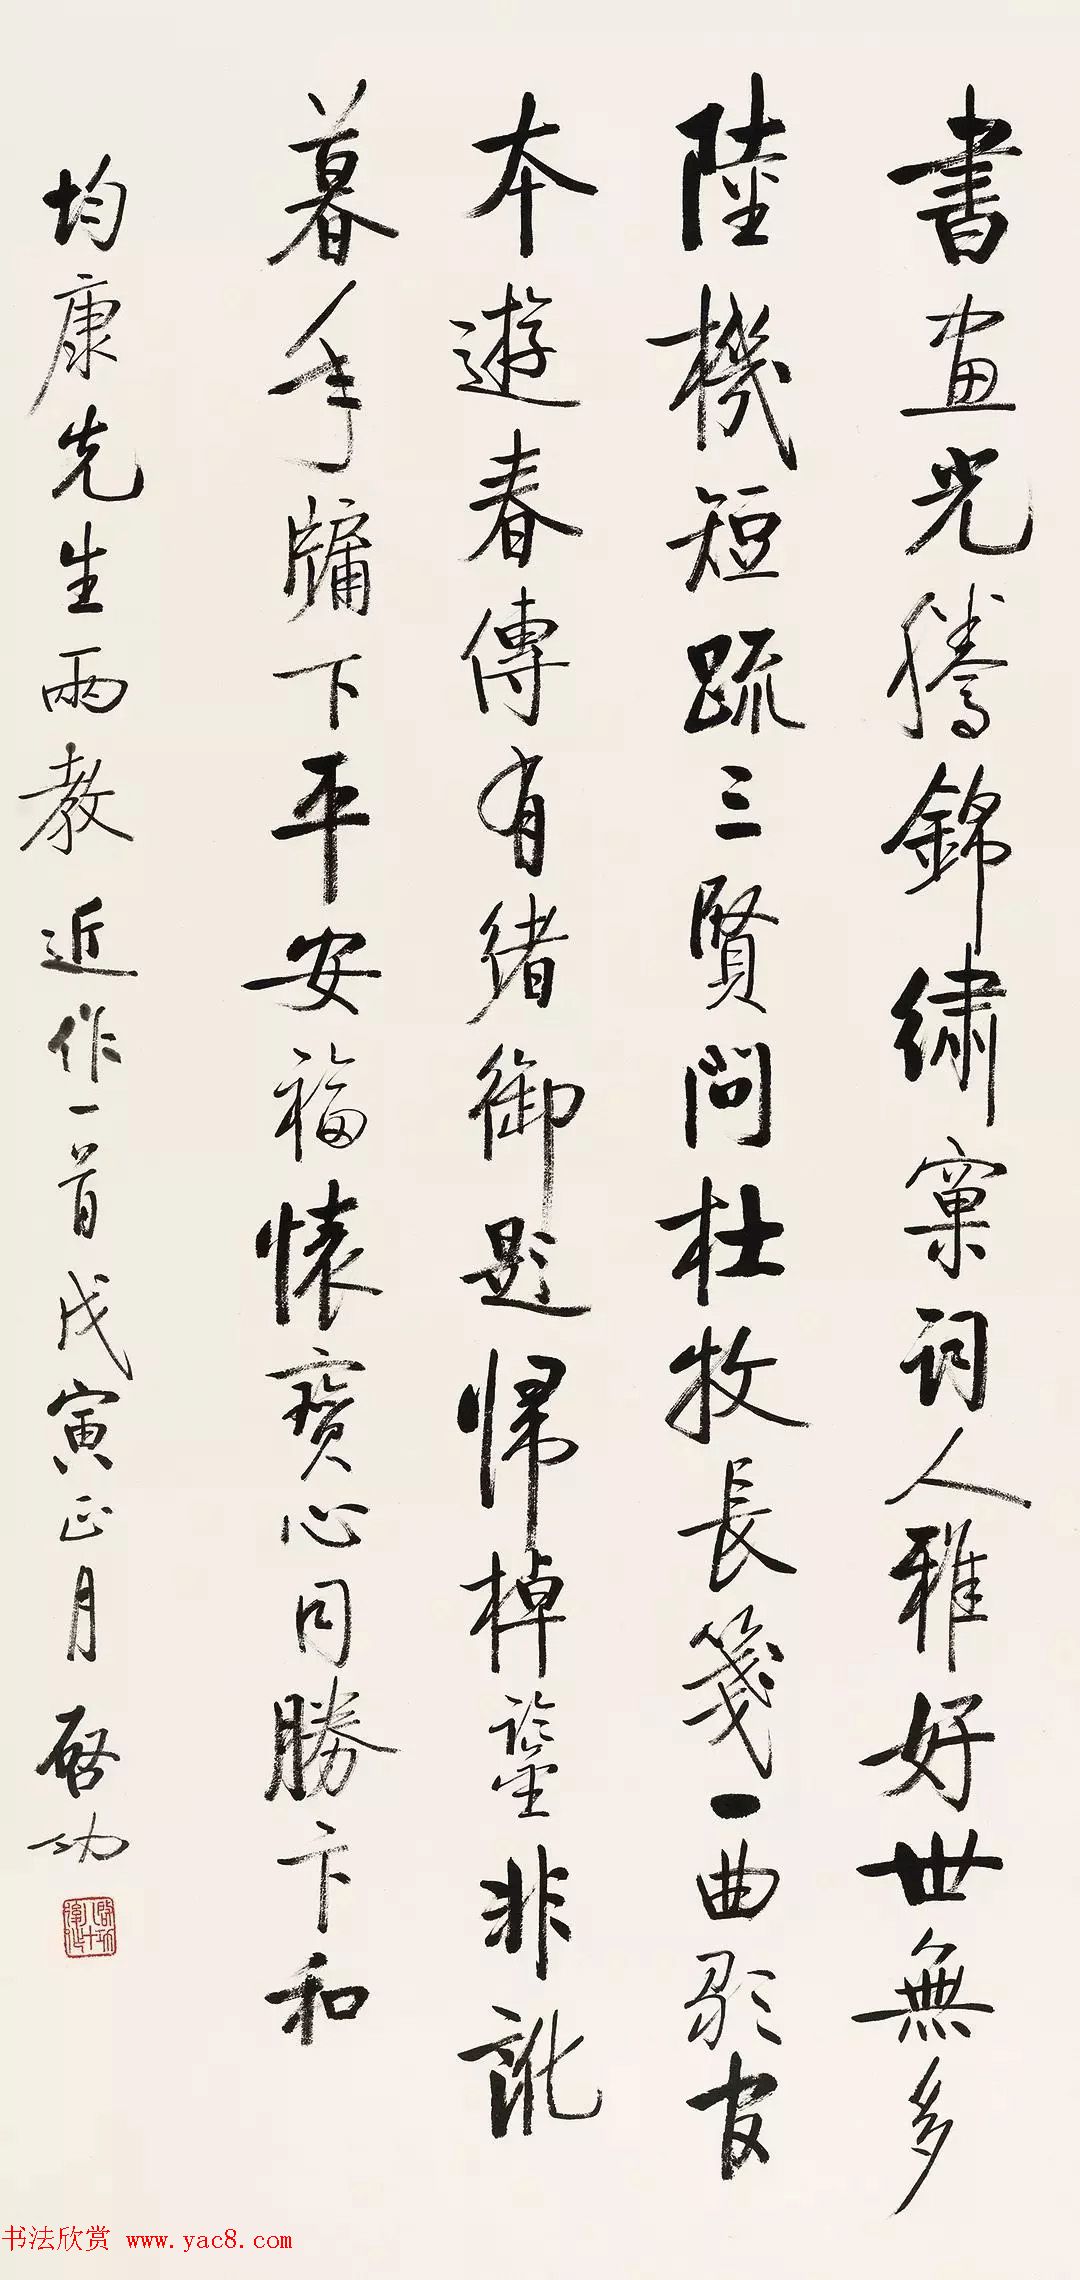 書畫光騰錦繡窠詞人雅好世無多
陸機短疏三賢問杜牧長箋一曲歌官
本遊春傳有緒御題歸棹鑒非訛
暮年牖下平安福懷寶心同勝卞和
均康先生兩教近作一首戊寅正月啓功
书法欣赏 www.yac8.com